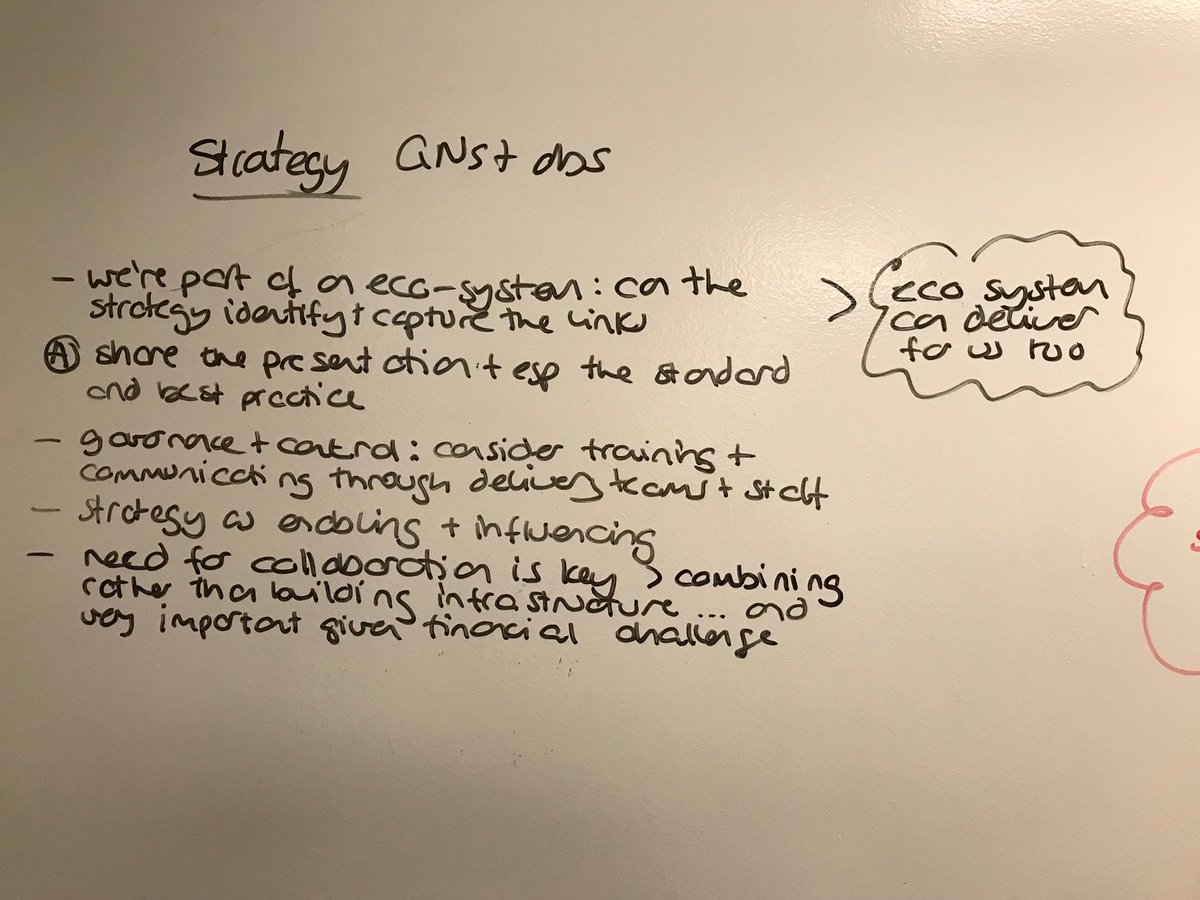 Strategy QNs + obs
- we're part of an eco-system: can the
strategy identify + capture the links
> eco system
can deliver
for us too
(A) share the presentation + esp the standard
and best practice
- governance + control: consider training +
communicating through delivery teams + staff
- strategy as enabling + influencing
- need for collaboration is key > combining
rather than building infrastructure ... and
very important given financial challenge